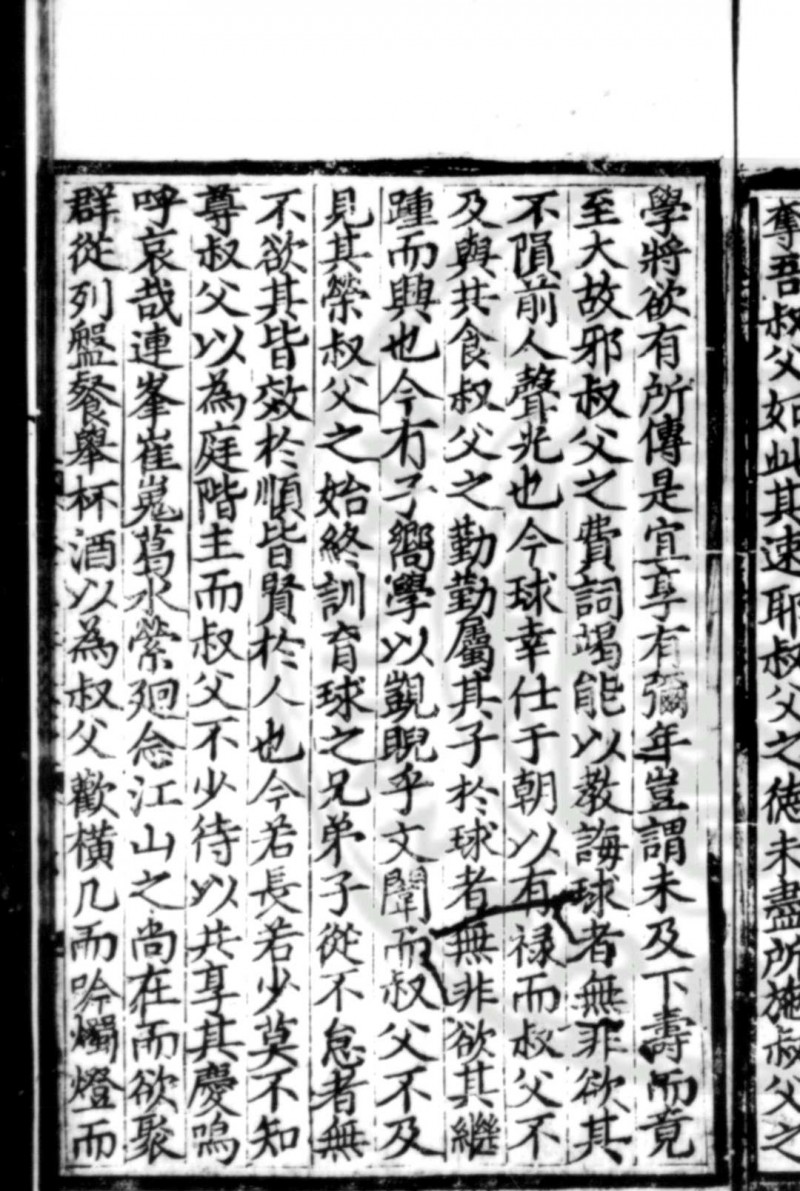 奪吾叔父如此其速耶叔父之德未盡所施叔父之
學將欲有所傳是宜享有彌年豈謂未及下壽而竟
至大故邪叔父之費詞竭能以教誨球者無非欲其
不隕前人聲光也今球幸仕于朝以有禄而叔父不
及與共食叔父之勤勤屬其子於球者無非欲其繼
踵而興也今有子嚮學以觀覬乎文闈而叔父不及
見其榮叔父之始終訓育球之兄弟子從不怠者無
不欲其皆效於順皆賢於人也今若長若少莫不知
尊叔父以為庭階主而叔父不少待以共享其慶嗚
呼哀哉連峯崔嵬葛水縈廻念江山之尚在而欲聚
群從列盤餐舉杯酒以為叔父歡橫几而吟燭燈而